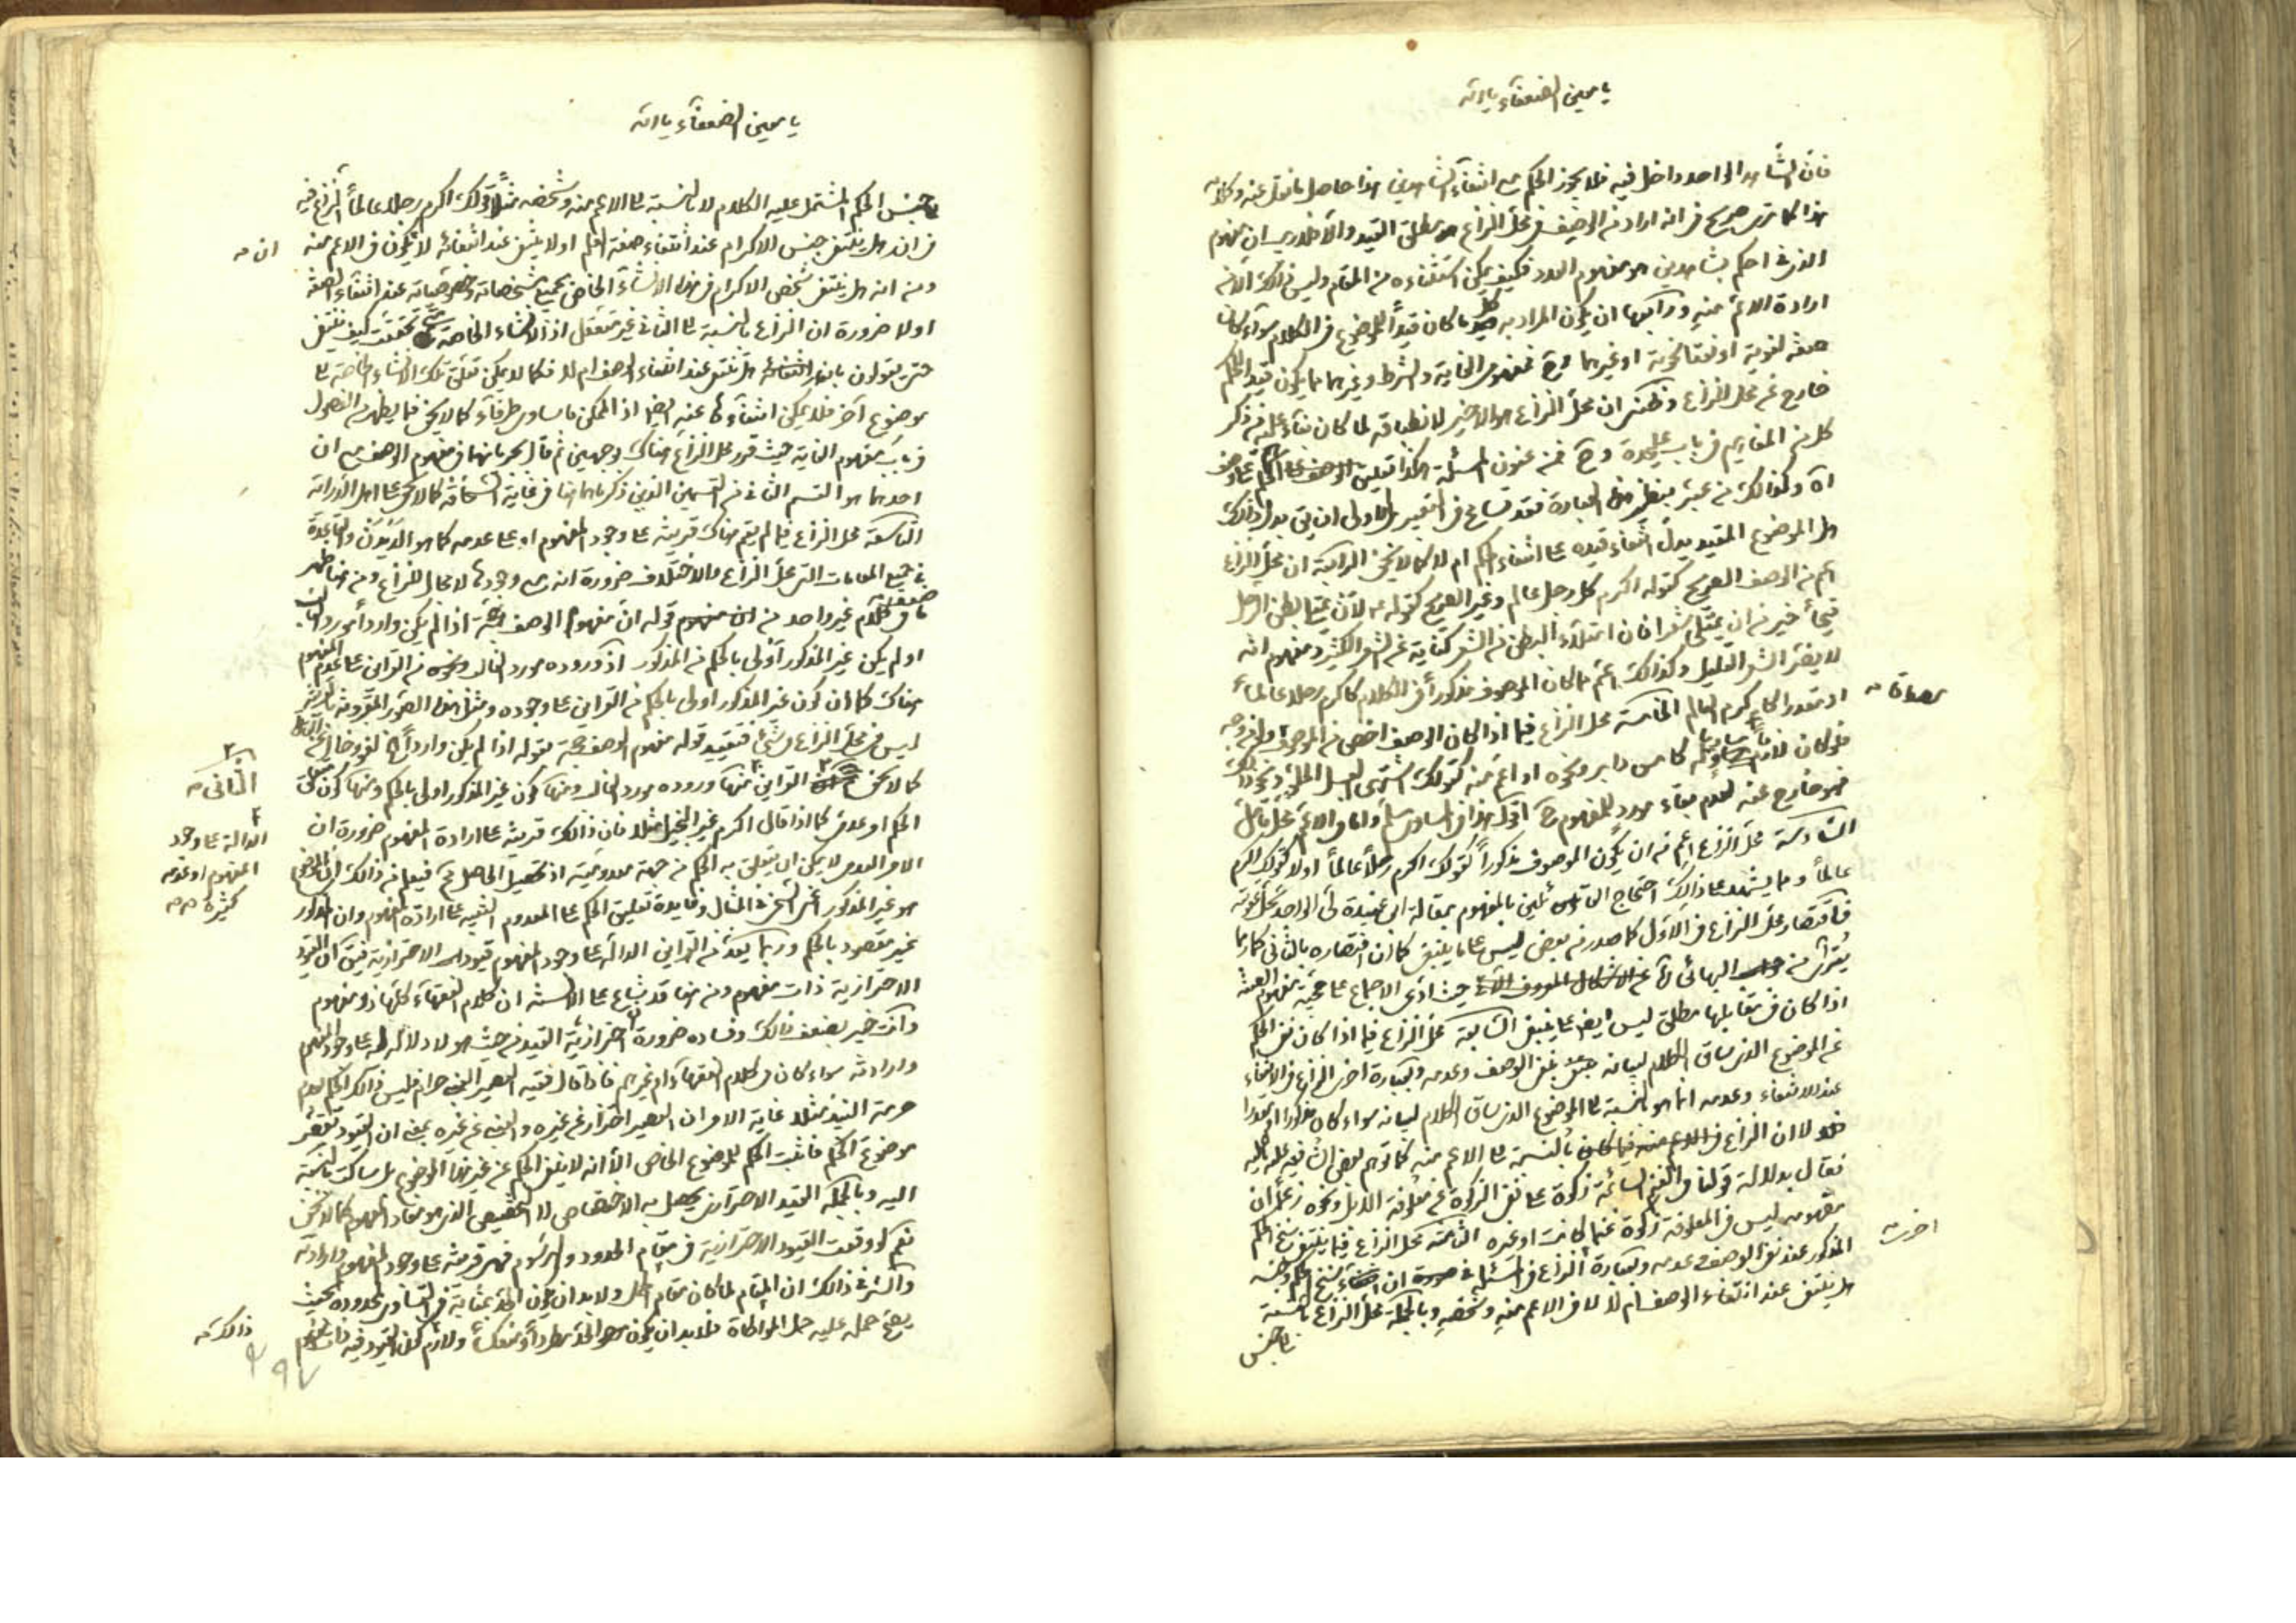 يا معين الضعفاء يا الله
فان الشاهد الواحد داخل فيه فلا يجوز الحكم مع انتفاء الشاهدين هذا حاصل ما نقل عنه وكلامه
هذا كما ترى صريح في انه اراد من الوصف في محل النزاع هو مطلق القيد والا فلا ريب ان مفهوم
الذى في احكم بشاهدين هو مفهوم العدد فكيف يمكن استثناءه من المقام وليس ذالك الا من
ارادة الاعم منه ورابعها ان يكون المراد به كل ما كان قيداً للموضوع في الكلام سواء كان
صفة لغوية او نعتا نحوية او غيرهما وح فمفهوم الغاية والشرط وغيرهما مما يكون قيد الحكم
خارج عن محل النزاع وظنى ان محل النزاع هو الاخير لانطباقه لما كان بناء عليه من ذكر
كل من المفاهيم في باب عليحدة وح فمن عنون المسئلة هكذا تعليق الحكم على الوصف
اه وكذالك من عبر بنظير هذه العبارة فقد تسامح في التعبير والاولى ان يق بدل ذالك
هل الموضوع المقيد يدل انتفاء قيده على انتفاء الحكم ام لا كما لا يخفى الرابعة ان محل النزاع
اعم من الوصف الصريح كقوله اكرم كل رجل عالم وغير الصريح كقوله ع لان يمتلى بطن الرجل
قيحاً خير من ان يمتلى شعرا فان امتلاء البطن من الشعر كناية عن الشعر الكثير ومفهومه انه
لا يضر الشعر القليل وكذالك اعم مما كان الموصوف مذكوراً في الكلام كاكرم رجلا عالما
او مقدرا كاكرم العالم الخامسة محل النزاع فيما اذا كان الوصف اخص من الموصوف
مصداقا
فهو خارج عنه لعدم بقاء مورد للمفهوم ح اقول هذا في المساوى مسلم واما في الاعم محل تامل
السادسة محل النزاع اعم من ان يكون الموصوف مذكوراً كقولك اكرم رجلاً عالماً اولا كقولك اكرم
عالماً ومما يشهد على ذالك احتجاج القائلين بالمفهوم بمقالة ابى عبيدة في لى الواجد يحل عقوبته
فاقتصار محل النزاع في الاول كما صدر من بعض ليس على ما ينبغى كما ان اقتصاره بالثانى كما ربما
يتراى من البهائى حيث ادعى الاجماع على حجية مفهوم الصفة
اذا كان في مقابلها مطلق ليس ايض على ما ينبغى السابعة محل النزاع فيما اذا كان نفى الحكم
عن الموضوع الذى ساق الكلام لبيانه بنفى الوصف وعدمه وبعبارة اخرى النزاع في الانتفاء
عند الانتفاء وعدمه انما هو بالنسبة الى الموضوع الذى ساق الكلام لبيانه سواء كان مذكورا او مقدرا
لا ان النزاع بالنسبة الى الاعم منه كما توهم بعض الشافعية
فقال بدلالة قولنا في الغنم السائمة زكوة على نفى الزكوة عن معلوفة الابل ونحوه زعماً ان
مفهومه ليس في المعلوفة زكوة غنما كانت او غيره الثامنة محل النزاع فيما ينتفى سنخ الحكم
المذكور عند نفى الوصف وعدمه وبعبارة النزاع في المسئلة في ان سنخ الحكم وجنسه
اخرى
هل ينتفى عند انتفاء الوصف ام لا لا في الاعم منه وشخصه وبالجملة محل النزاع بالنسبة
الى جنس
يا معين الضعفاء يا الله
الى جنس الحكم المشتمل عليه الكلام لا بالنسبة الى الاعم منه وشخصه مثلاً قولك اكرم رجلا عالماً النزاع فيه
في ان هل ينتفى جنس الاكرام عند انتفاء صفة العلم اولا ينتفى عند انتفائه لا يكون في الاعم منه
ان
ومن انه هل ينتفى شخص الاكرام في هذا الانشاء الخاص بجميع مشخصاته وخصوصياته عند انتفاء الصفة
اولا ضرورة ان النزاع بالنسبة الى الثانى غير متعقل اذ الانشاء الخاصة تحققت كيف ينتفى
حتى يقولون بانه هل تنتفى عند انتفاء الوصف ام لا فكما لا يمكن تعلق تلك الانشاء الخاصة الى
موضوع آخر فلا يمكن انتفاءها عنه ايضا اذ الممكن ما تساوى طرفاه كما لا يخفى فما يظهر من الفصول
في باب مفهوم الغاية حيث قرر محل النزاع هناك وجهين ثم قال بجريانهما في مفهوم الوصف مع ان
احدهما هو القسم الثانى من القسمين الذين ذكرناهما هنا في غاية السخافة كما لا يخفى على اهل الدراية
التاسعة محل النزاع فيما لم يقم هناك قرينة على وجود المفهوم او على عدمه كما هو الديدن والقاعدة
في جميع المقامات التى محل النزاع والاختلاف ضرورة انه مع وجودها لا مجال للنزاع ومن هنا ظهر
ضعف ما في كلام غير واحد من قوله ان مفهوم الوصف حجة اذا لم يكن وارداً مورد الغالب
او لم يكن غير المذكور اولى بالحكم من المذكور اذ وروده مورد الغالب ونحوه من القراين على عدم المفهوم
هناك كما ان كون غير المذكور اولى بالحكم من القراين على وجوده ومثل هذه الصور المقرونة بالقرينة
ليس في محل النزاع في شئ فتقييد قوله مفهوم الوصف حجة بقوله اذا لم يكن وارداً اه لغو وخال عن الفائدة
كما لا يخفى القراين منها وروده مورد الغالب ومنها كون غير المذكور اولى بالحكم ومنها كون
الثانى
الحكم او عدمى كما اذا قال اكرم غير البخيل مثلا فان ذالك قرينة على ارادة المفهوم ضرورة ان
الدالة على وجود
المفهوم او عدمه
كثيرة
الامر العدمى لا يمكن ان يتعلق به الحكم من جهة معدوميته اذ تحصيل الحاصل مح فيعلم من ذالك ان الغرض
هو غير المذكور اعنى السخى في المثال وفايدة تعليق الحكم على المعدوم التنبيه على ارادة المفهوم وان المذكور
غير مقصود بالحكم وربما يعد من القراين الدالة على وجود المفهوم قيود الاحترازية فيق ان القيود
الاحترازية ذات مفهوم ومن هنا قد يشاع على الالسنة ان كلام الفقهاء كلها ذو مفهوم
وانت خبير بضعف ذالك وفساده ضرورة ان احترازية القيد من حيث هو لا دلالة له على وجود المفهوم
وارادته سواء كان في كلام الفقهاء او غيرهم فاذا قال فقيه العصير العنبى حرام فليس ذالك الحكم بعدم
حرمة النبيذ مثلا غاية الامر ان العصير احتراز عن غيره والعنبى عن غيره بمعنى ان القيود تقصر
موضوع الحكم فاثبت الحكم للموضوع الخاص الا انه لا ينفى الحكم عن غير هذا الموضوع بل ساكت بالنسبة
اليه وبالجملة القيد الاحترازى يحصل به الاختصاص لا التخصيص الذى هو مفاد المفهوم كما لا يخفى
نعم لو وقعت القيود الاحترازية في مقام الحدود والرسوم فهى قرينة على وجود المفهوم وارادته
والسر في ذالك ان المقام لما كان مقام الحمل ولا بد ان يكون الحد بمثابة في التساوى لمحدوده بحيث
يصح حمله عليه حمل المواطاة فلا بد ان يكون الحد مطرداً ومنعكساً ولازم كون القيود فيه ذات مفهوم
ذالك